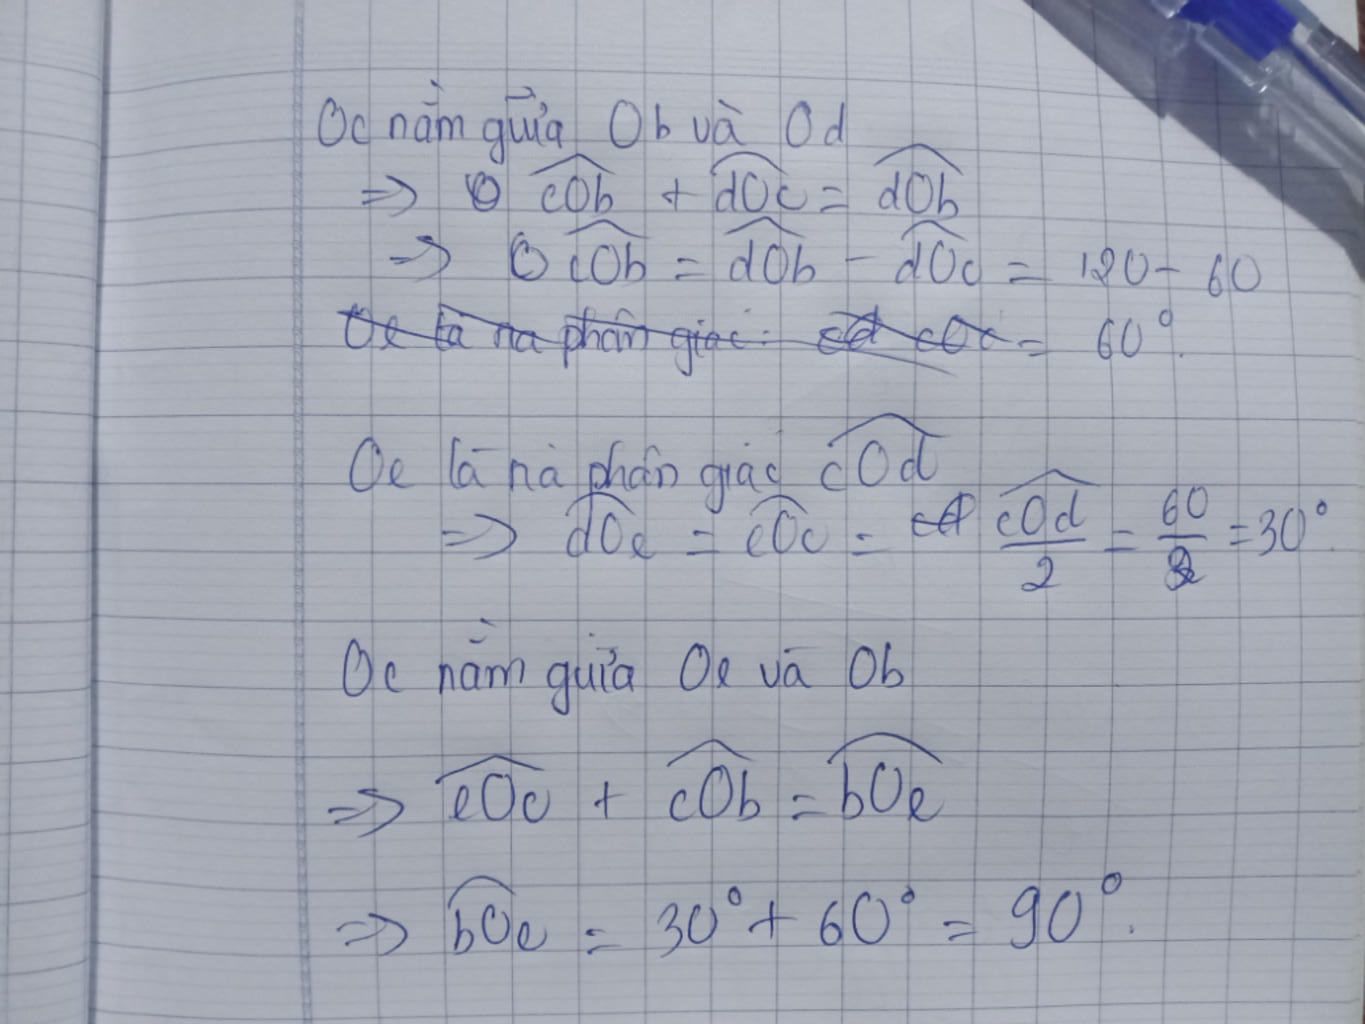 Oc nằm giữa Ob và Od
=> cOb + dOc = dOb
=> cOb = dOb - dOc = 120 - 60
Oe là na phân giác: cOc = 60°.
Oe là nà phân giác cOd
=> dOe = eOc = cOd/2 = 60/2 = 30°.
Oc nằm giữa Oe và Ob
=> eOc + cOb = bOe
=> bOe = 30° + 60° = 90°.